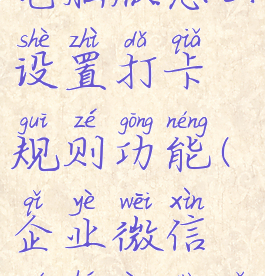 shè zhì dǎ qiǎ
设置打卡
guī zé gōng néng
规则功能(
qǐ yè wēi xìn
企业微信